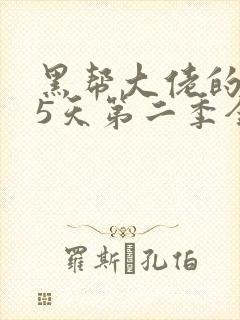 黑帮大佬的
5天第二季全
羅斯 孔伯